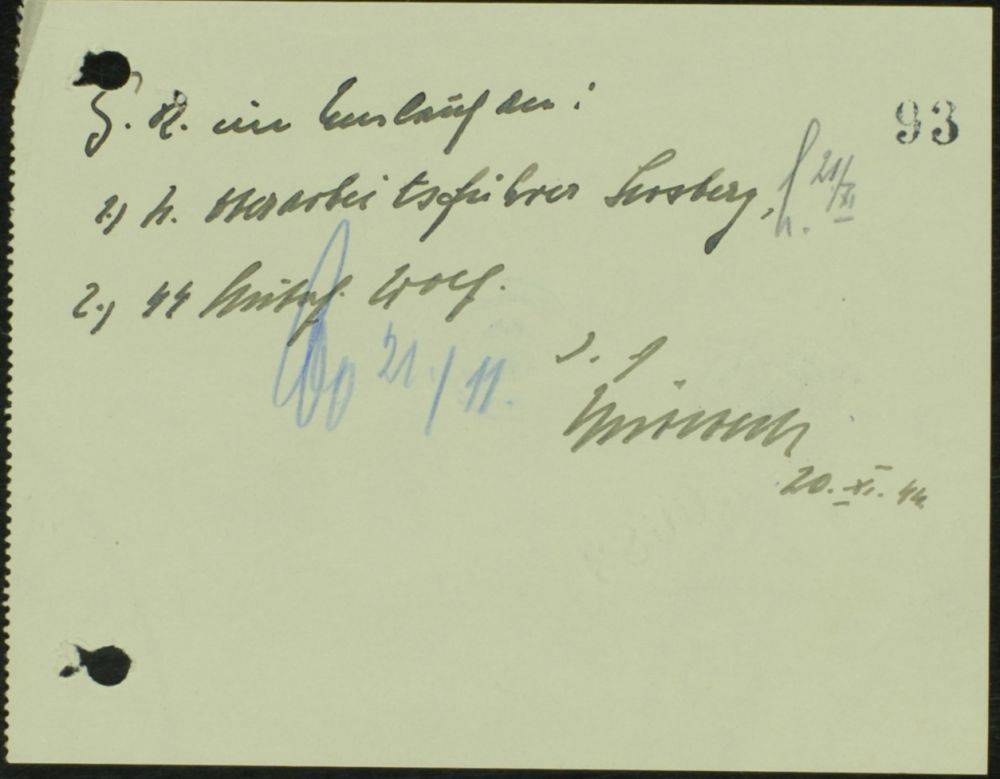 93
Z. K. im Umlauf an:
1.) H. Oberarbeitsführer Sosberg, 21/XI
2.) SS Wolf.
21./11.
20. XI. 44